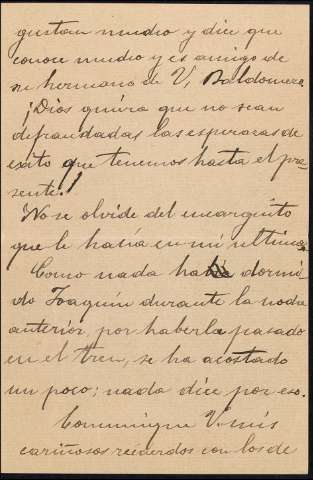 gustan mucho y dice que
conoce mucho y es amigo de
su hermano de V, Baldomero.
¡Dios quiera que no sean
defraudadas las esperanzas de
éxito que tenemos hasta el pre-
sente!
No se olvide del encarguito
que le hacía en mi última.
Como nada ha dormi-
do Joaquín durante la noche
anterior, por haberla pasado
en el tren, se ha acostado
un poco; nada dice por eso.
Comunique V. mis
cariñosos recuerdos con los de